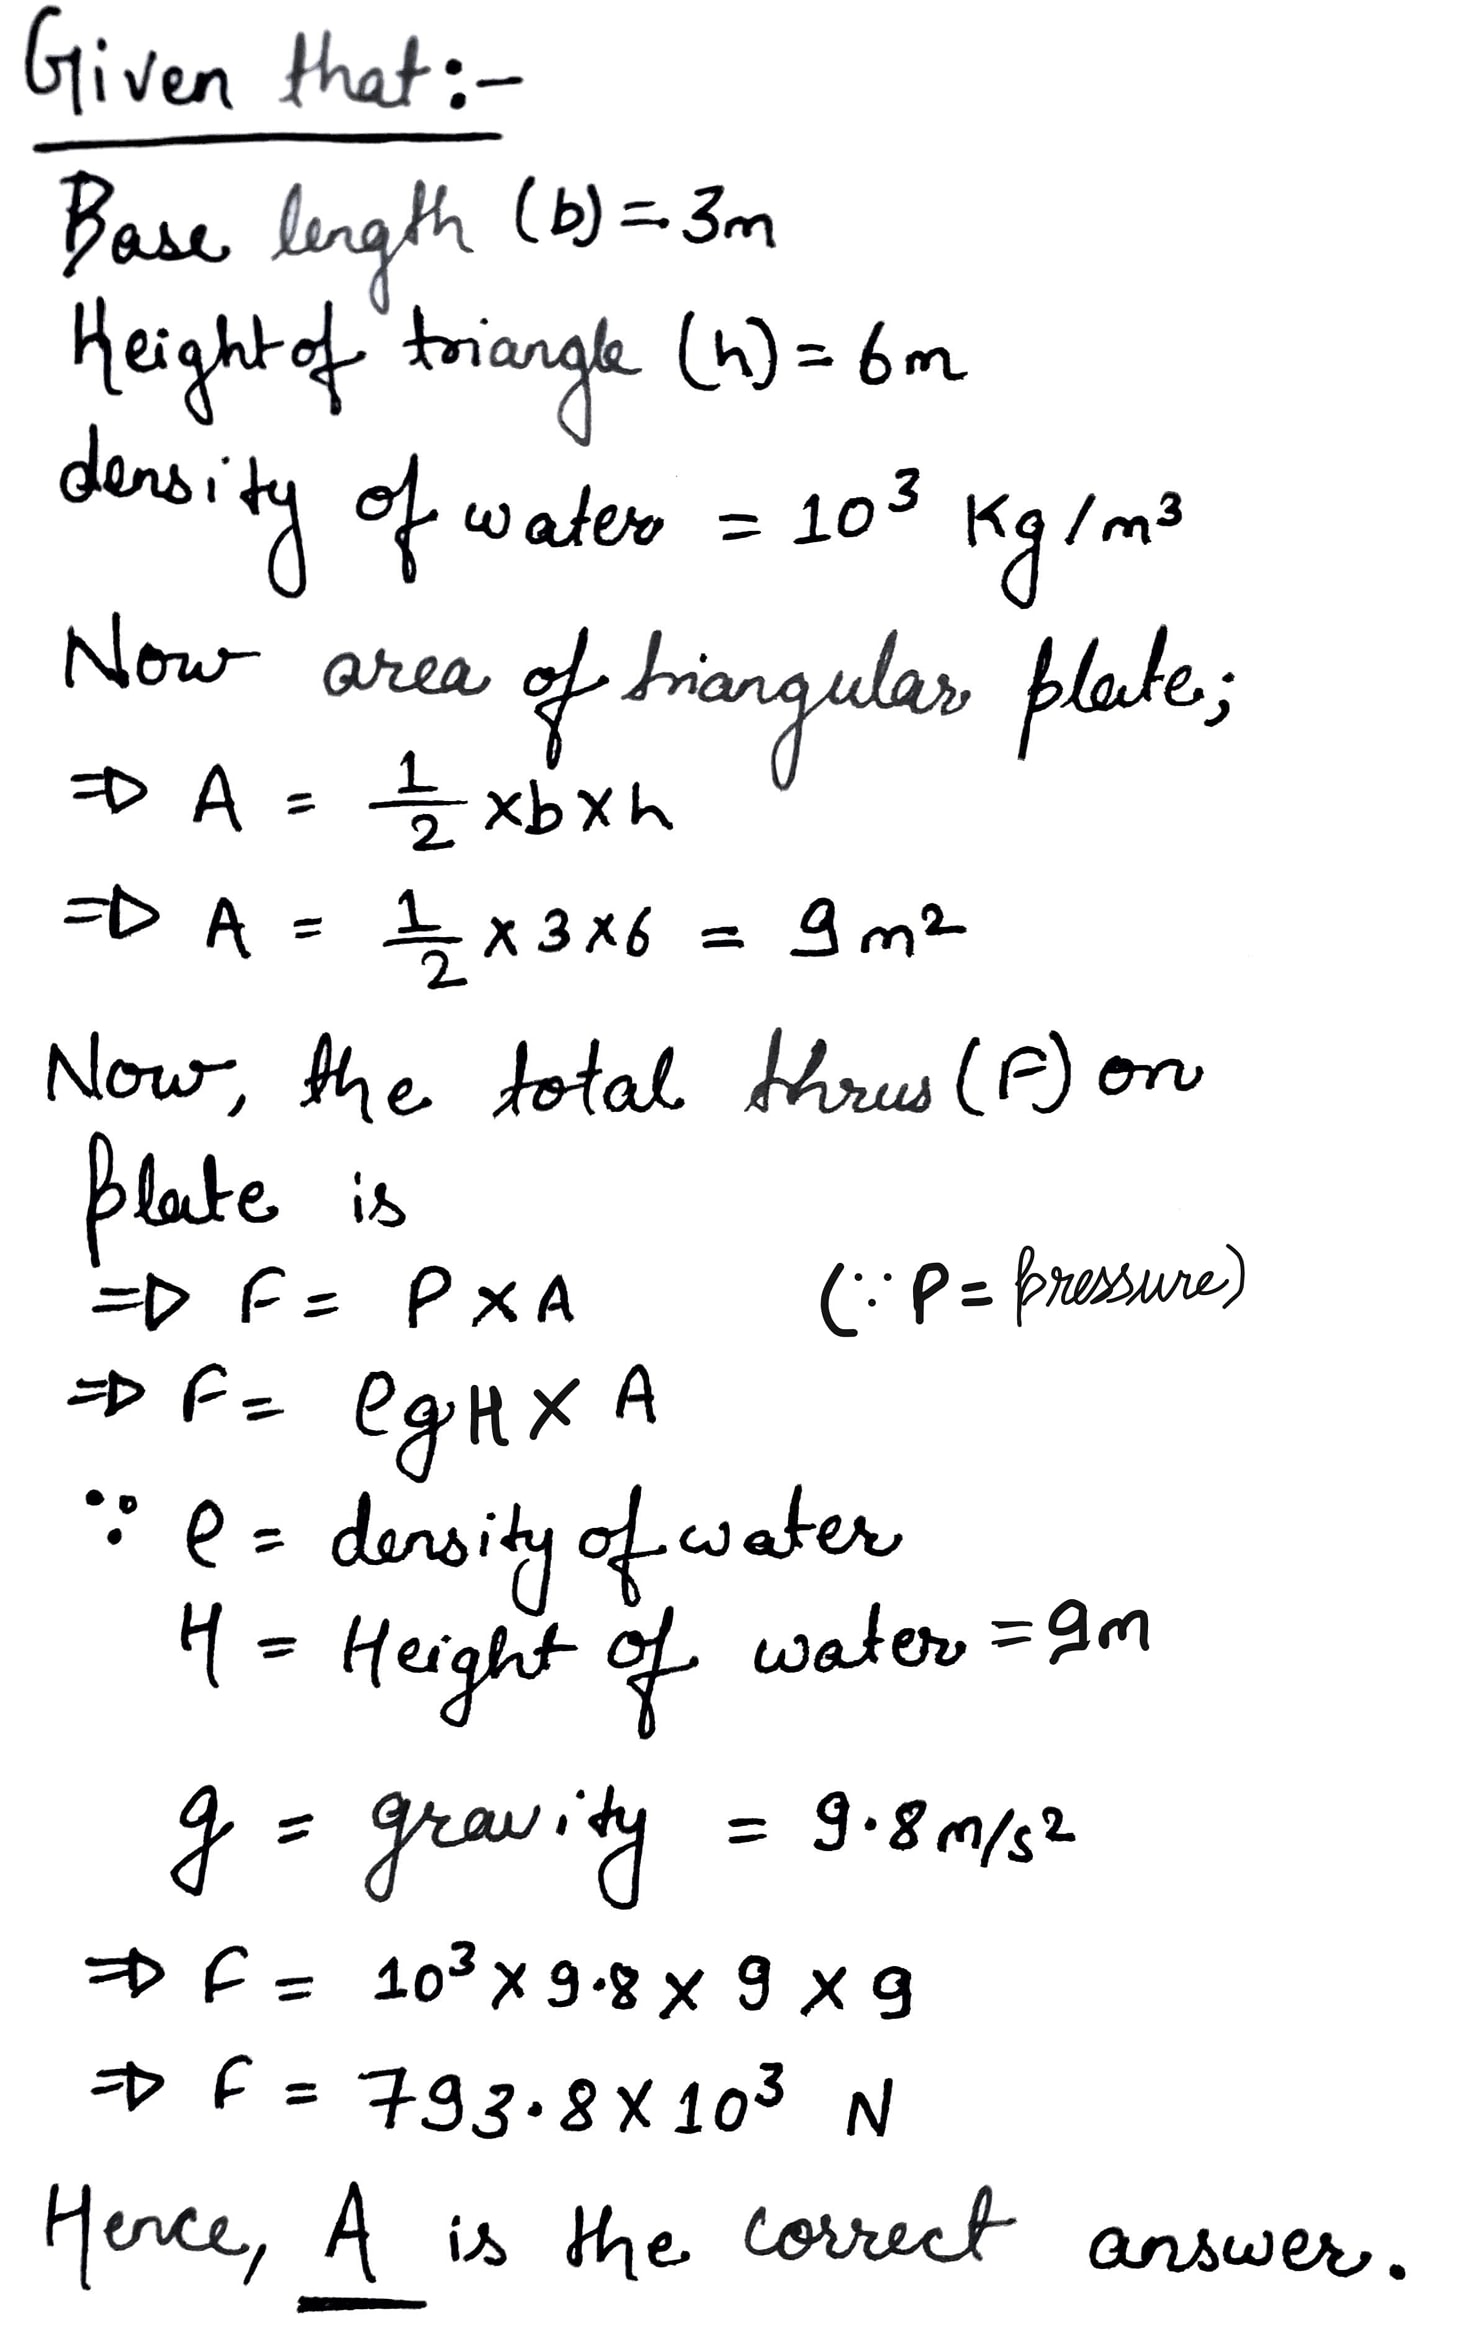 Given that:-
Base length (b) = 3m
Height of triangle (h) = 6m
density of water = 10³ Kg/m³
Now area of triangular plate;
⇒ A = 1/2 × b × h
⇒ A = 1/2 × 3 × 6 = 9 m²
Now, the total thrus (F) on
plate is
⇒ F = P × A (∵ P = pressure)
⇒ F = ρgH × A
∵ ρ = density of water
H = Height of water = 9m
g = gravity = 9.8 m/s²
⇒ F = 10³ × 9.8 × 9 × 9
⇒ F = 793.8 × 10³ N
Hence, A is the correct answer.